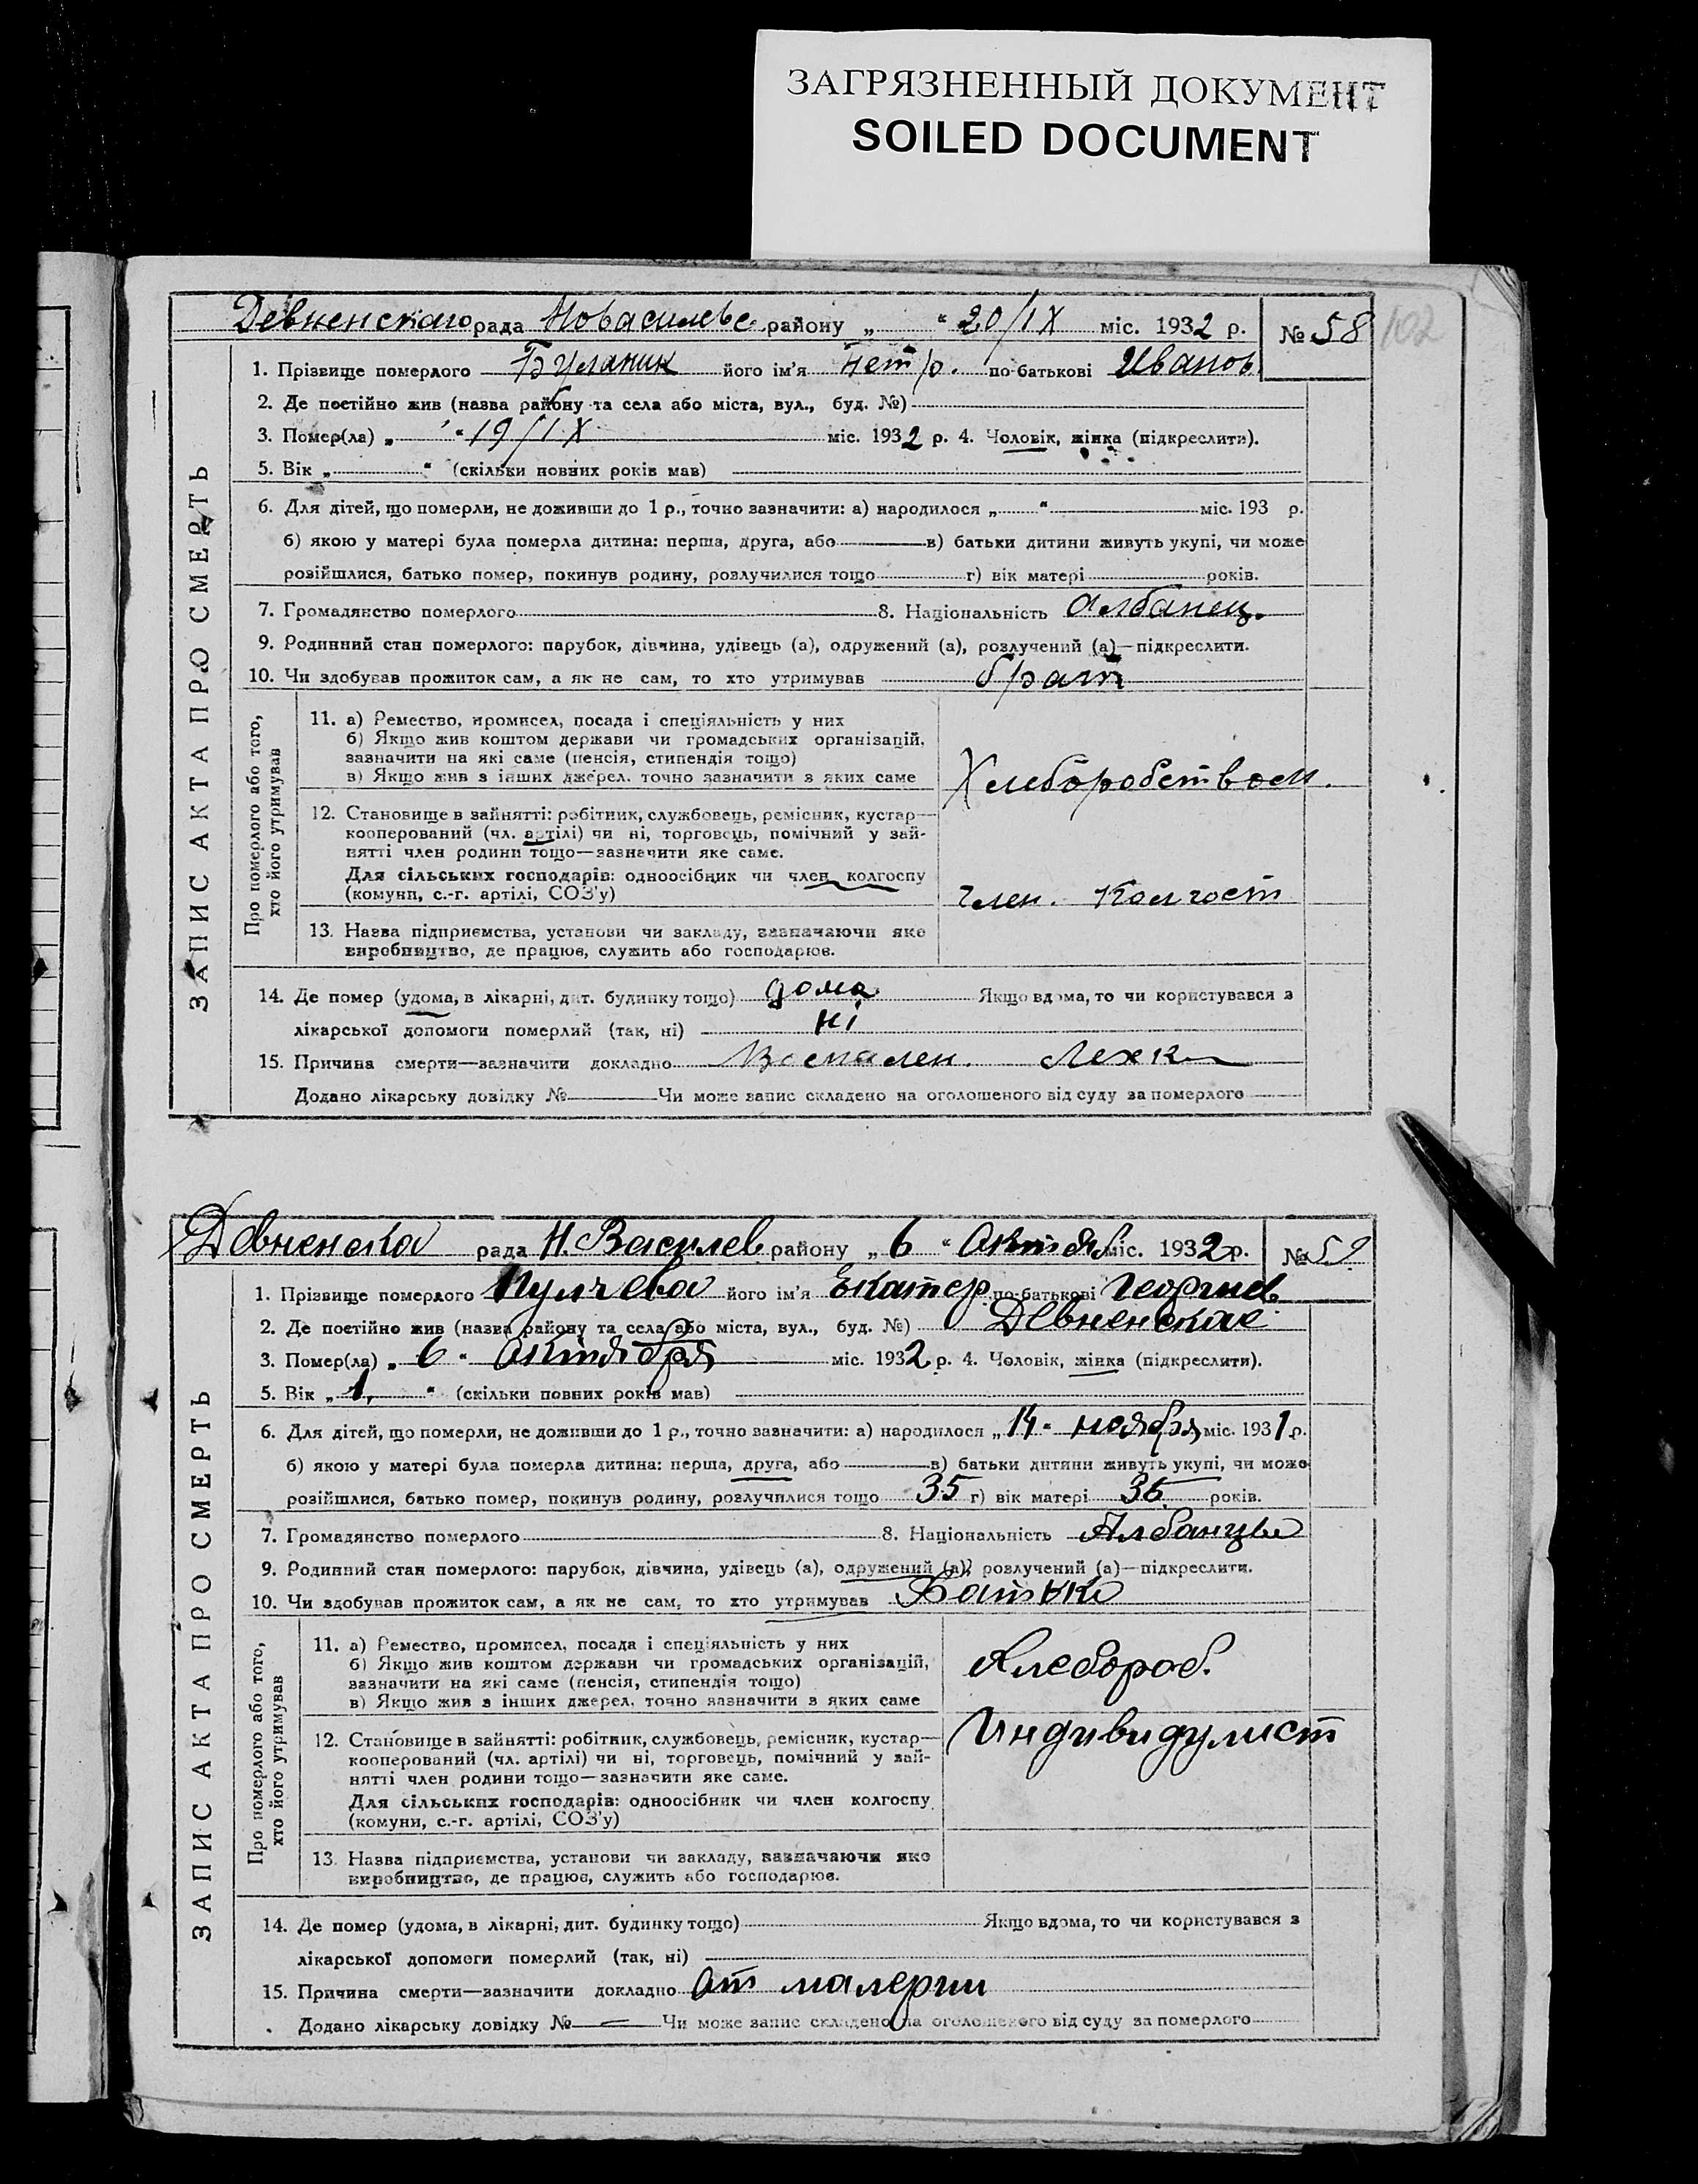 ЗАГРЯЗНЕННЫЙ ДОКУМЕНТ
SOILED DOCUMENT
Девненскаго рада Новасилевс. району „ “ 20/IX міс. 1932 р.
№ 58
102
1. Прізвище померлого Буланик його ім'я Петр. по-батькові Иванов
2. Де постійно жив (назва району та села або міста, вул., буд. №)
3. Помер(ла) „ “ 19/IX міс. 1932 р. 4. Чоловік, жінка (підкреслити).
5. Вік „ “ (скільки повних років мав)
6. Для дітей, що померли, не доживши до 1 р., точно зазначити: а) народилося „ “ міс. 193 р.
б) якою у матері була померла дитина: перша, друга, або в) батьки дитини живуть укупі, чи може
розійшлися, батько помер, покинув родину, розлучилися тощо г) вік матері років.
7. Громадянство померлого 8. Національність Албанец.
9. Родинний стан померлого: парубок, дівчина, удівець (а), одружений (а), розлучений (а)—підкреслити.
10. Чи здобував прожиток сам, а як не сам, то хто утримував брат
ЗАПИС АКТА ПРО СМЕРТЬ
Про померлого або того,
хто його утримував
11. а) Ремество, промисел, посада і спеціяльність у них
б) Якщо жив коштом держави чи громадських організацій,
зазначити на які саме (пенсія, стипендія тощо)
в) Якщо жив з інших джерел, точно зазначити з яких саме
Хлеборобством.
12. Становище в зайнятті: робітник, службовець, ремісник, кустар—
кооперований (чл. артілі) чи ні, торговець, помічний у зай-
нятті член родини тощо—зазначити яке саме.
Для сільських господарів: одноосібник чи член колгоспу
(комуни, с.-г. артілі, СОЗ'у)
член. Колгосп
13. Назва підприємства, установи чи закладу, зазначаючи яке
виробництво, де працює, служить або господарює.
14. Де помер (удома, в лікарні, дит. будинку тощо) дома Якщо вдома, то чи користувався з
лікарської допомоги померлий (так, ні) ні
15. Причина смерти—зазначити докладно Воспален. Лехк
Додано лікарську довідку № Чи може запис складено на оголошеного від суду за померлого
Девненска рада Н. Василев. району „ 6 “ Октяб міс. 1932 р.
№ 59
1. Прізвище померлого Кулчева його ім'я Екатер по-батькові Георгиев
2. Де постійно жив (назва району та села або міста, вул., буд. №) Девненскае
3. Помер(ла) „ 6 “ Октября міс. 1932 р. 4. Чоловік, жінка (підкреслити).
5. Вік „ 1, “ (скільки повних років мав)
6. Для дітей, що померли, не доживши до 1 р., точно зазначити: а) народилося „ 14 “ ноября міс. 1931 р.
б) якою у матері була померла дитина: перша, друга, або в) батьки дитини живуть укупі, чи може
розійшлися, батько помер, покинув родину, розлучилися тощо 35 г) вік матері 36 років.
7. Громадянство померлого 8. Національність Албанцы
9. Родинний стан померлого: парубок, дівчина, удівець (а), одружений (а), розлучений (а)—підкреслити.
10. Чи здобував прожиток сам, а як не сам, то хто утримував Батьки
ЗАПИС АКТА ПРО СМЕРТЬ
Про померлого або того,
хто його утримував
11. а) Ремество, промисел, посада і спеціяльність у них
б) Якщо жив коштом держави чи громадських організацій,
зазначити на які саме (пенсія, стипендія тощо)
в) Якщо жив з інших джерел, точно зазначити з яких саме
Хлебороб.
12. Становище в зайнятті: робітник, службовець, ремісник, кустар—
кооперований (чл. артілі) чи ні, торговець, помічний у зай-
нятті член родини тощо—зазначити яке саме.
Для сільських господарів: одноосібник чи член колгоспу
(комуни, с.-г. артілі, СОЗ'у)
Индивидулист
13. Назва підприємства, установи чи закладу, зазначаючи яке
виробництво, де працює, служить або господарює.
14. Де помер (удома, в лікарні, дит. будинку тощо) Якщо вдома, то чи користувався з
лікарської допомоги померлий (так, ні)
15. Причина смерти—зазначити докладно от малерии
Додано лікарську довідку № — Чи може запис складено на оголошеного від суду за померлого